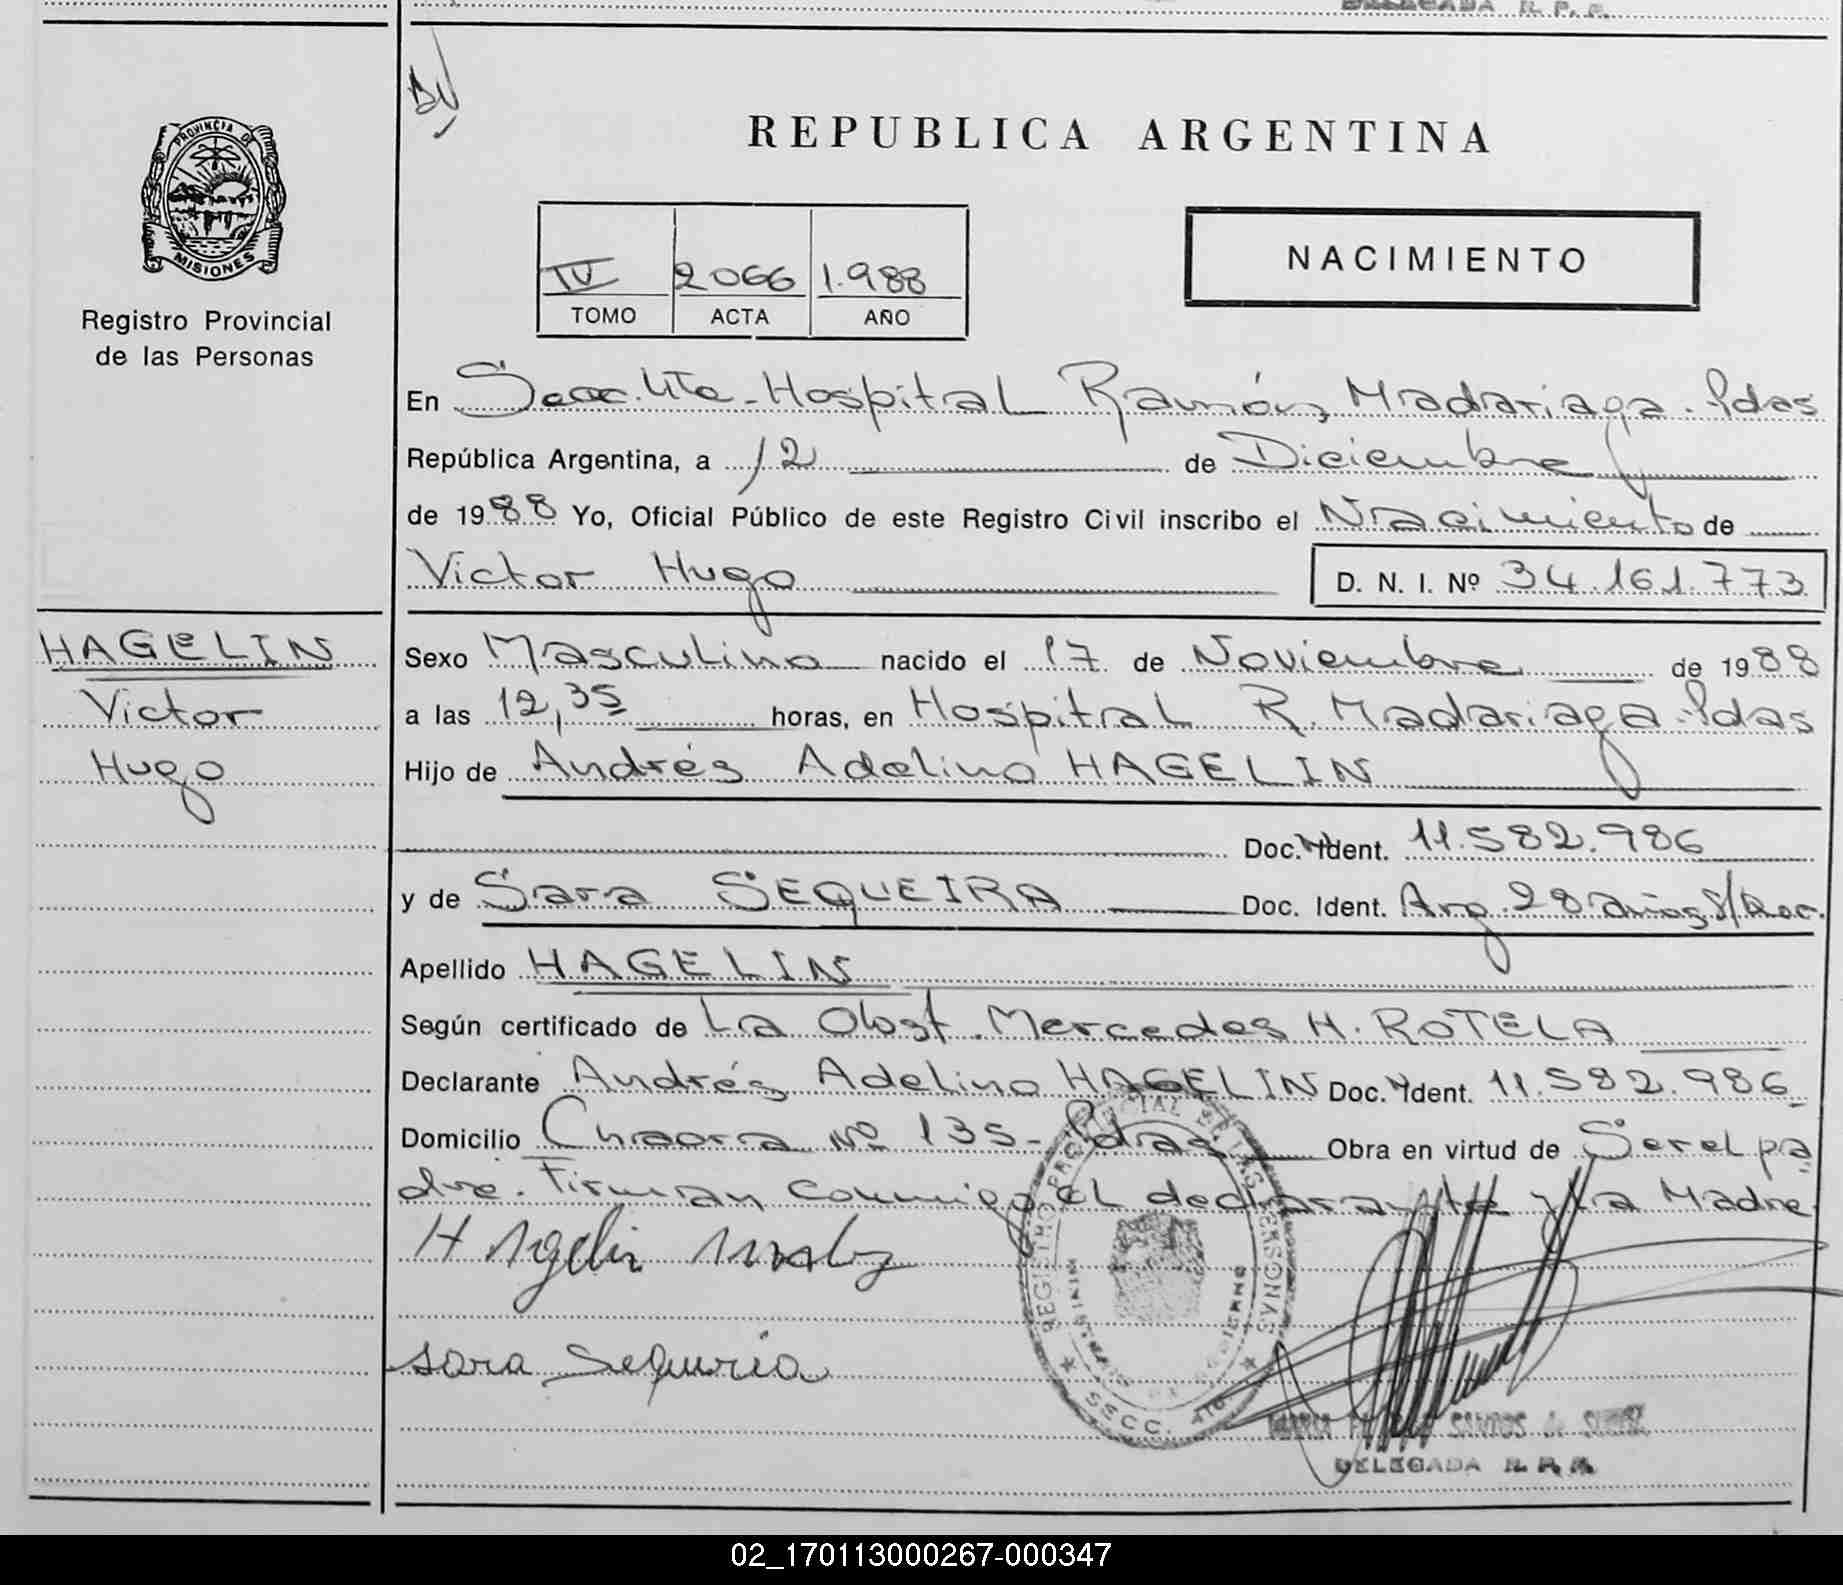 DELEGADA R. P. P.
REPUBLICA ARGENTINA
PROVINCIA DE
MISIONES
Registro Provincial
de las Personas
IV 2066 1.988
TOMO ACTA AÑO
NACIMIENTO
En Secc. 4ta - Hospital Ramón Madariaga - Pdas
República Argentina, a 12 de Diciembre
de 1988 Yo, Oficial Público de este Registro Civil inscribo el Nacimiento de
Victor Hugo D. N. I. Nº 34.161.773
HAGELIN
Victor
Hugo
Sexo Masculino nacido el 17 de Noviembre de 1988
a las 12,35 horas, en Hospital R. Madariaga - Pdas
Hijo de Andrés Adelino HAGELIN
Doc. Ident. 11.582.986
y de Sara SEQUEIRA Doc. Ident. Arg. 28 años s/Doc.
Apellido HAGELIN
Según certificado de La Obst. Mercedes H. ROTELA
Declarante Andrés Adelino HAGELIN Doc. Ident. 11.582.986
Domicilio Nº 135 - Pdas Obra en virtud de Ser el pa
dre. Firman conmigo el declarante y la Madre
Hagelin
Sara Sequeria
REGISTRO PROVINCIAL DE LAS PERSONAS
GOBIERNO
SECC. 4ta
SANTOS de
DELEGADA R. P. P.
02_170113000267-000347